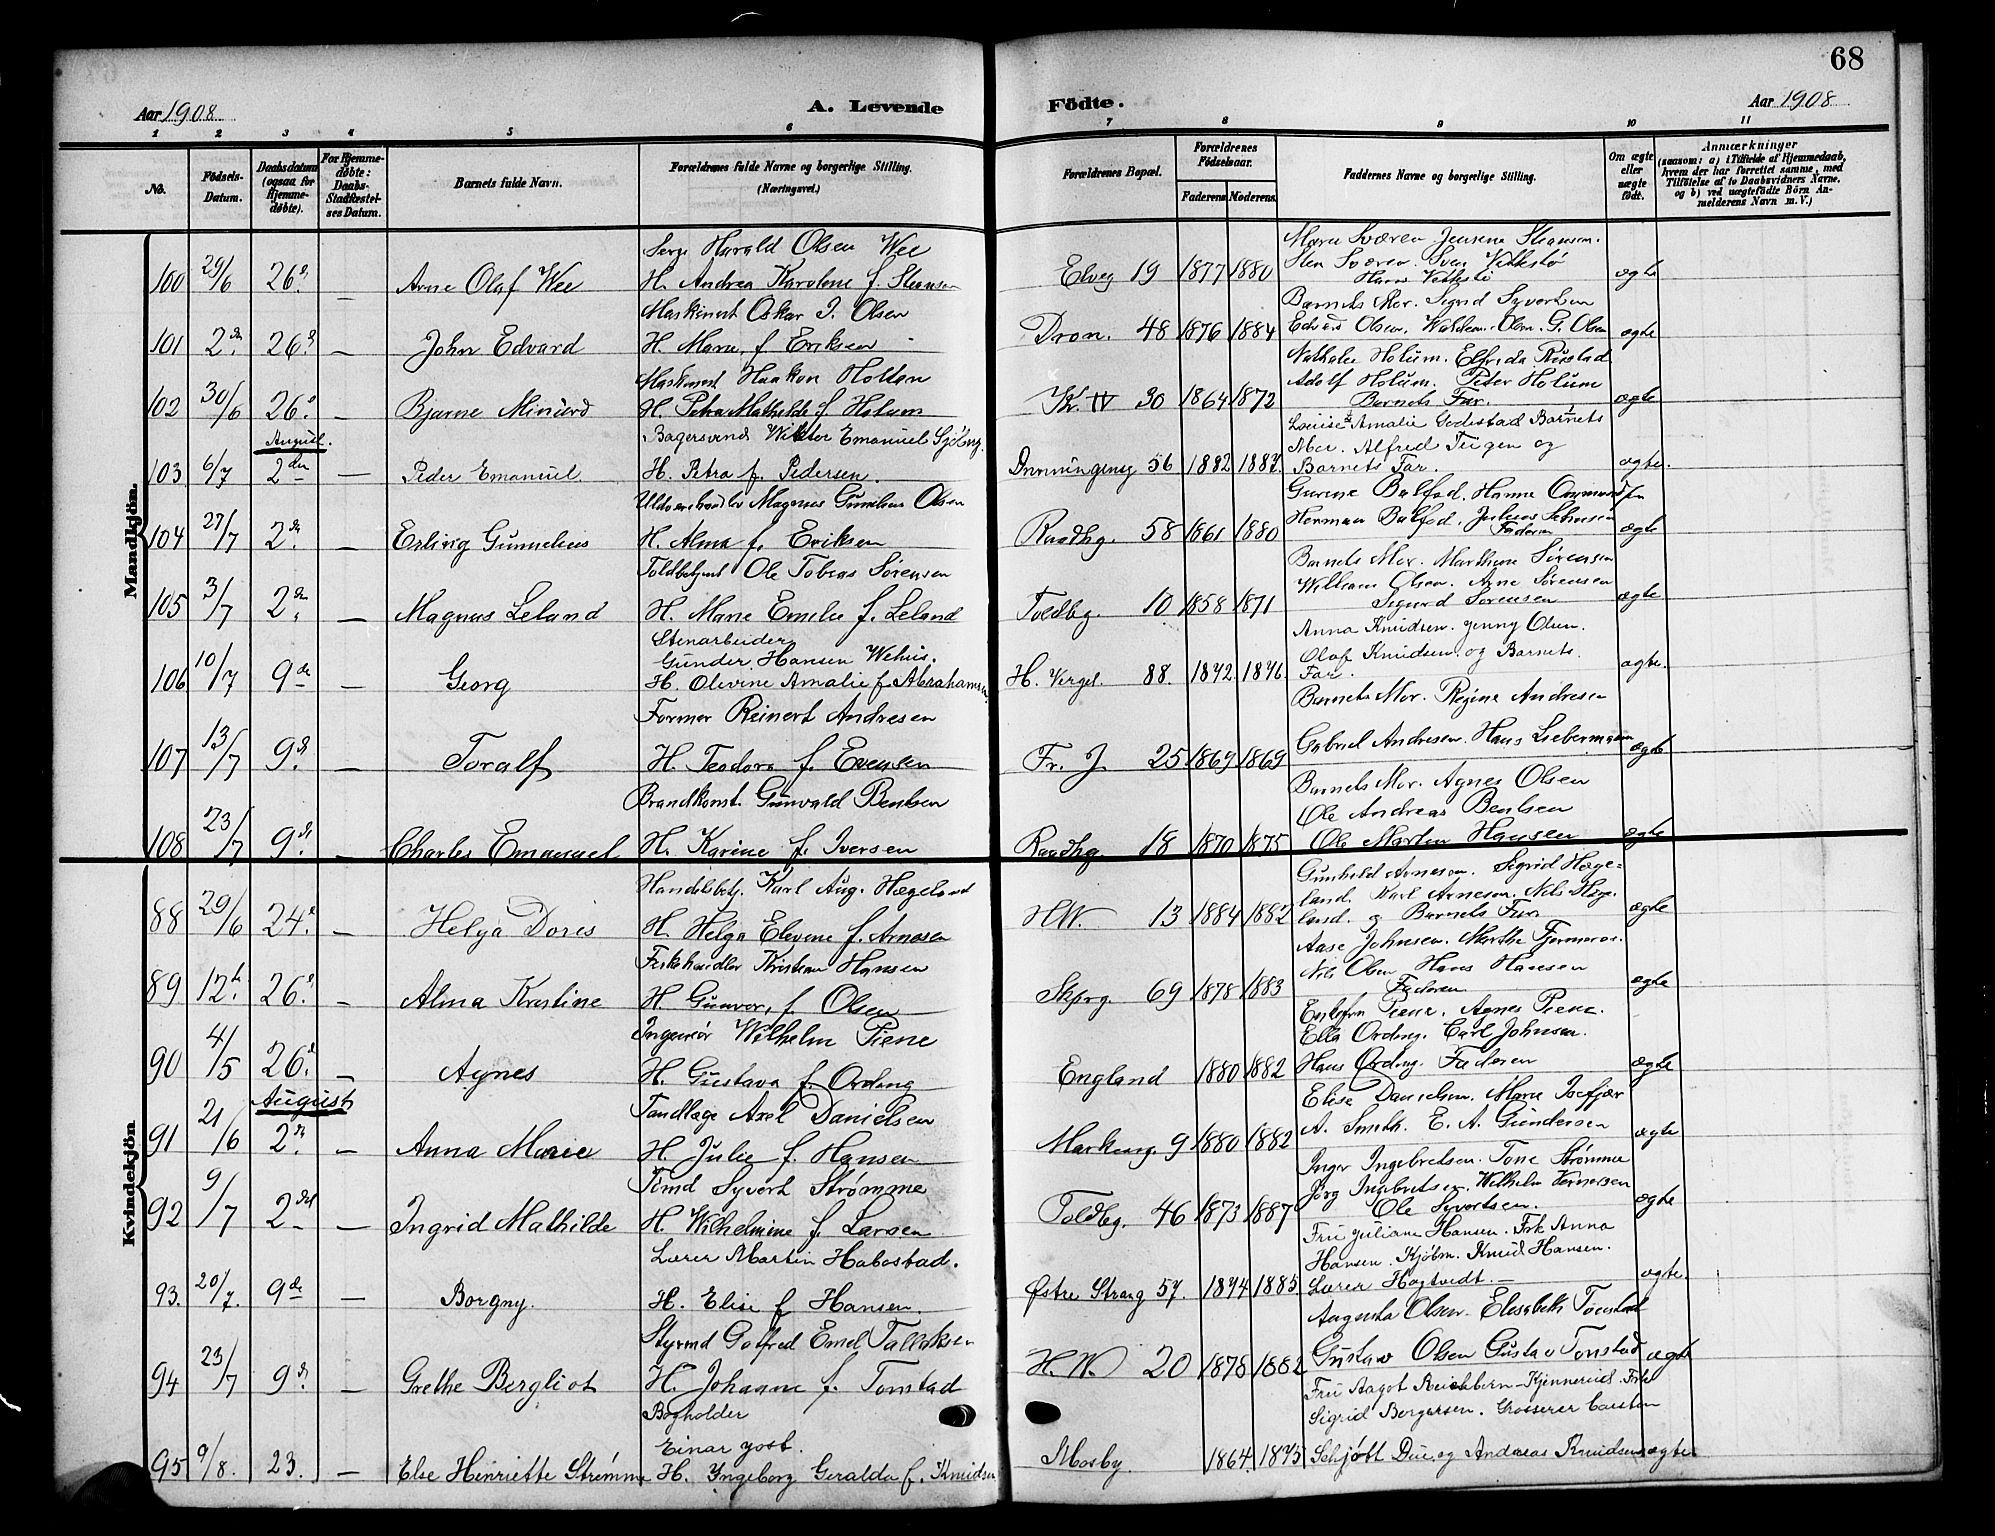 68
Aar 1908
A. Levende
Fødte.
Aar 1908
1 2 3 4 5 6 7 8 9 10 11
No.
Fødsels-
Datum.
Daabsdatum
(ogsaa for
Hjemme-
døbte).
For Hjemme-
døbte:
Daabs-
Stadfæstel-
ses Datum.
Barnets fulde Navn.
Forældrenes fulde Navne og borgerlige Stilling.
(Næringsvei.)
Forældrenes Bopæl.
Forældrenes
Fødselsaar.
Faderens Moderens
Faddernes Navne og borgerlige Stilling.
Om ægte
eller
uægte
født.
Anmærkninger
(saasom: a) i Tilfælde af Hjemmedaab,
hvem der har forrettet samme, med
Tilføielse af to Daabsvidners Navne,
og b) ved uægtefødte Børn An-
melderens Navn m. V.)
Mandkjön.
Harald Olsen Wee
100 29/6 26 – Arne Olaf Wee H. Andrea Karolene f. Stensen Elveg 19 1877 1880 ægte
Maskinist Oskar J. Olsen Barnets Mor. Sigrid Syvertsen
101 2 26 – John Edvard H. Marie, f Eriksen Dron. 48 1876 1884 Edvard Olsen. G. Olsen ægte
Maskinist Haakon Holten Nathalie Holum. Elfrida Rustad
Adolf Holum. Peter Holum
102 30/6 26 – Bjarne H. Petra Mathilde f. Holum Kr. IV 30 1864 1872 Barnets Far. ægte
August.
Bagersvend Wiktor Emanuel Louise Amalie Godestad Barnets
Mor. Alfred Teigen og
103 6/7 2den – Peder Emanuel H. Petra f. Pedersen. Dronningensg 56 1882 1887. Barnets Far. ægte.
Magnus Gunelius Olsen Gurine Balfod. Hanne
104 27/7 2 – Erling Gunnelius H. Alma f. Eriksen Raadhg. 58 1861 1880 Herman Balfod. Julius Johnsen Faderen ægte
Toldbetjent Ole Tobias Sørensen Barnets Mor. Marthine Sørensen
William Olsen. Arne Sørensen
105 3/7 2 – Magnus Leland H. Marie Emelie f. Leland Toldbg. 10 1858 1871 Sigurd Sørensen ægte
Stenarbeider Anna Knudsen. Jenny Olsen.
Gunder Hansen Wehus. Olaf Knudsen og Barnets
106 10/7 9de – Georg H. Olevine Amalie f Abrahamsen H. Vergel. 88. 1872. 1876. Far. ægte.
Former Reinert Andresen Barnets Mor. Regine Andresen
107 13/7 9 – Toralf H. Teodora f. Evensen Fr. J 25 1869 1869 Gabriel Andresen. Hans Liebermann ægte
Brandkonst. Gunvald Bentsen Barnets Mor. Agnes Olsen
Ole Andreas Bentsen
108 23/7 9 – Charles Emanuel H. Karine f. Iversen Raadhg. 18 1870 1875 Ole Martin Hansen ægte
Kvindekjön
Handelsbetj. Karl Aug. Hægeland Gunhild Arnesen. Sigrid Hæge-
land. Karl Arnesen. Nils Hæge-
88 29/6 24 – Helga Doris H. Helga Elevine f. Arnesen H.W. 13 1884 1882 land. og Barnets Far ægte
Fiskehandler Kristian Hansen Aase Johnsen. Marthe
Nils Olsen Hans Hansen
89 12 26 – Alma Kristine H. Gunvor, f. Olsen Skjerg. 69 1878 1883 Faderen ægte
Ingeniør Wilhelm Piene Piene. Agnes Piene.
Ella Ording. Carl Johnsen.
90 4/5 26 – Agnes H. Gustava f. Ording England 1880 1882 Hans Ording. Faderen ægte
August
Tandlæge Axel Danielsen Elise Danielsen. Marie Isefjær
91 21/6 2 – Anna Marie H. Julie f. Hansen Markensg. 9 1880 1882 A. Smith. E. A. Gundersen ægte
Tømd Syvert Strømme Inger Ingebretsen. Tone Strømme
Jörg Ingebretsen. Wilhelm Vernersen
92 9/7 2 – Ingrid Mathilde H. Wilhelmine f. Larsen Toldbg. 46 1873 1887 Ole Syvertsen. ægte
Lærer Martin Habostad. Fru Juliane Hansen. Frk Anna
Hansen. Kjøbm. Knud Hansen.
93. 20/7. 9de – Borgny. H. Elise f Hansen. Østre Strang 57. 1874 1885 Lærer Hogtvedt. – ægte.
Styrmd Gotfred Emil Tallaksen Augusta Olsen. Elisabeth Tonstad
94 23/7 9 – Grethe Bergliot H. Johanne f. Tonstad H. W. 20 1878 1882 Gustav Olsen Gustav Tonstad ægte
Bogholder Fru Aagot Reichborn-Kjennerud. Frk
Einar Jost. Sigrid Bergersen. Grosserer Carsten
95 9/8. 23. – Else Henriette Strømme H. Ingeborg Geralda f. Knudsen Mosby. 1864. 1875 Schjøtt Due og Andreas Knudsen ægte